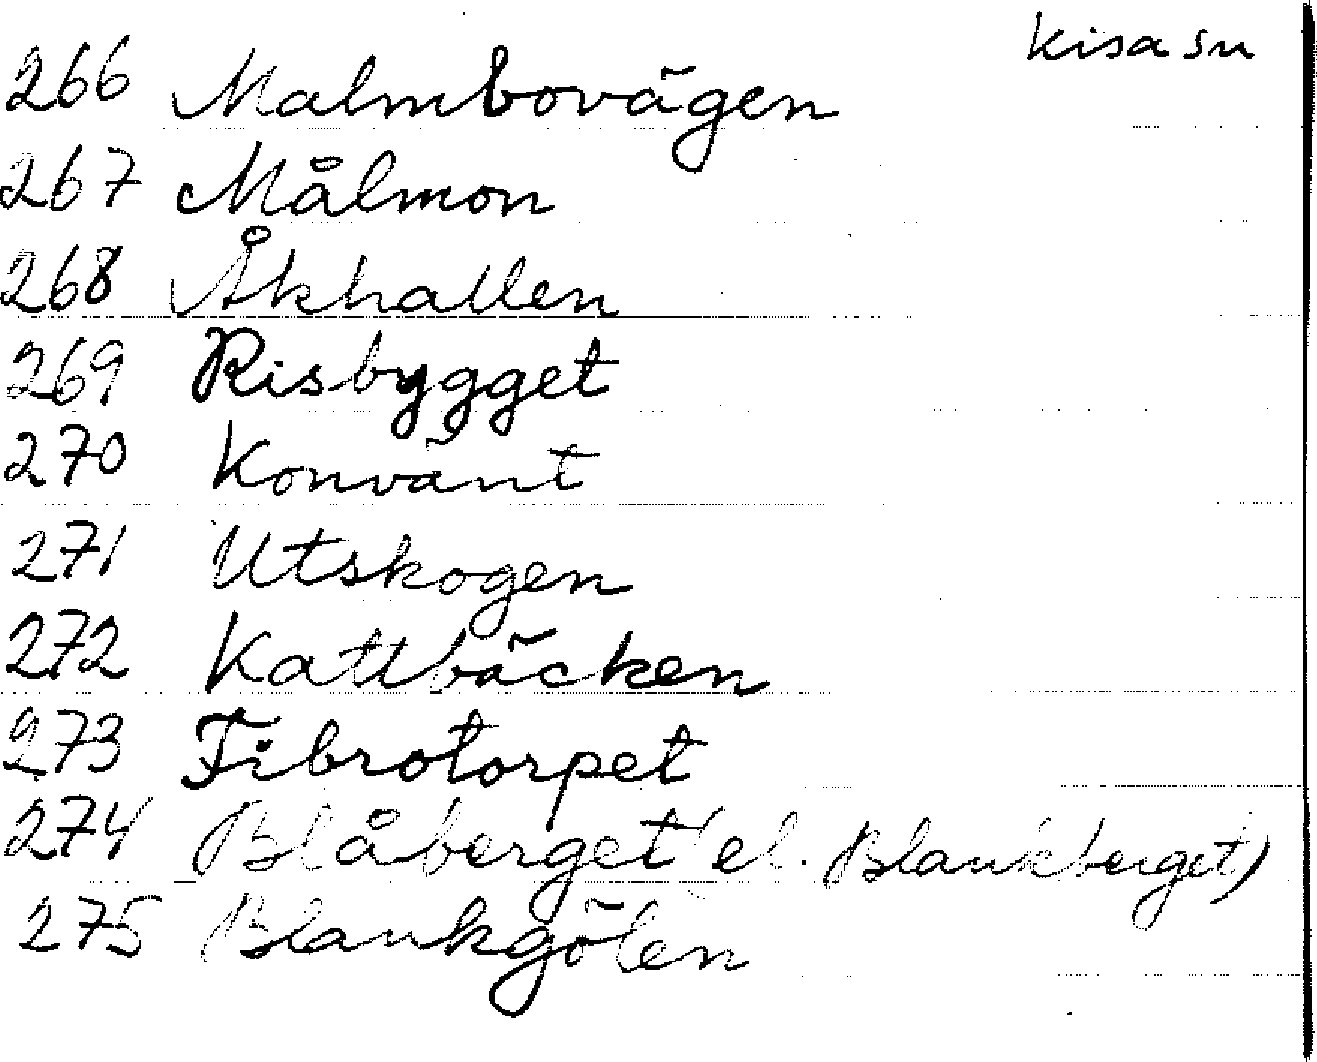 kisasu
266 Malmbovägen
267 Målmon
268 Åkhallen
269 Risbygget
270 Konvänt
271 Utskogen
272 Kattbäcken
273 Fibrotorpet
274 Blåberget (el. Blankberget)
275 Blankgölen